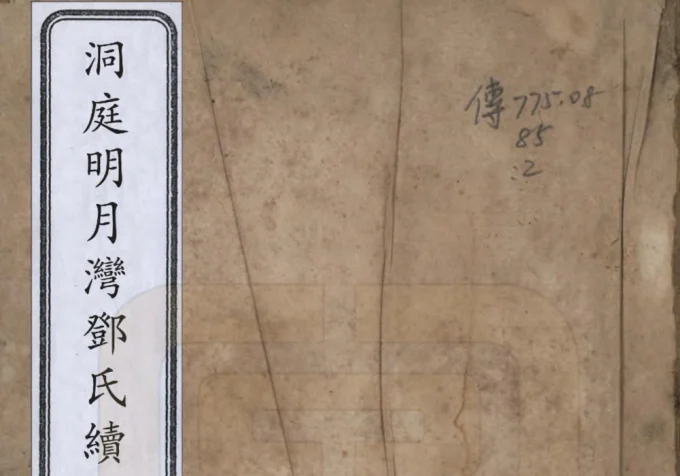 洞庭明月灣鄧氏續
傳 775.08
85
:2